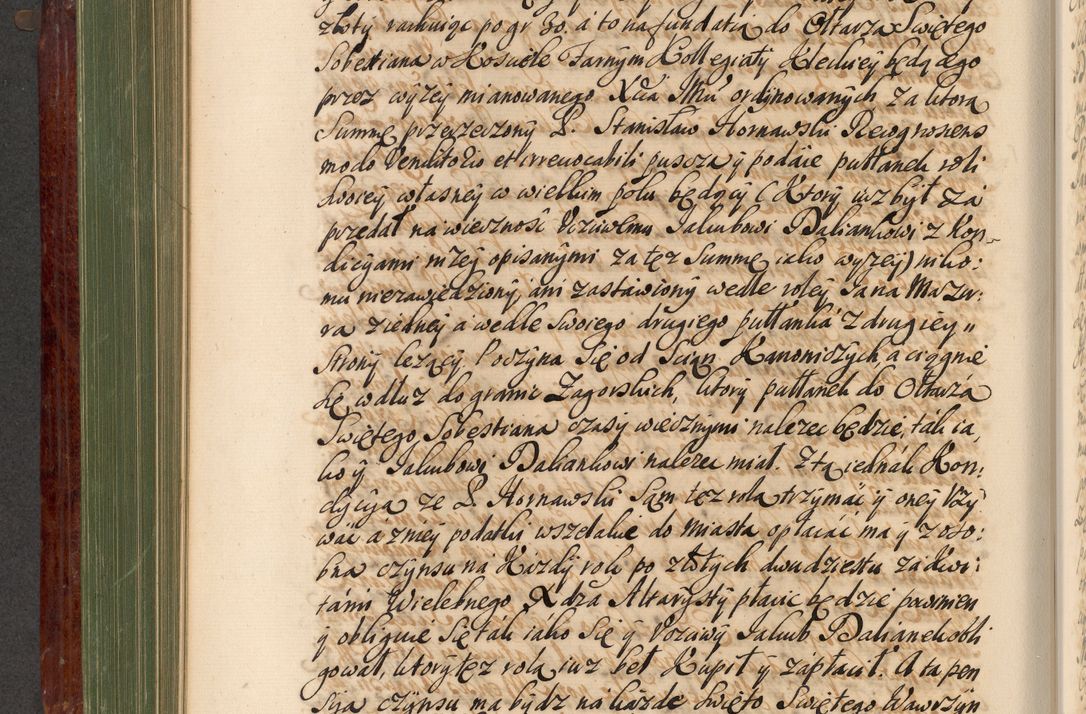 złoty rachuiąc po gr 30. a to na fundatią do Ołtarza Swiętego
Sobestiana w Kosciele Farnym Kollegiaty Kieckiey będącego
przez wyzey mianowanego Xdza Mci ordynowanych za ktora
Summę przerzeczony P. Stanisław Hornawski Recognosens
modo Venditorio et irrevocabili puscza y podaie pułłanek roli
swoiey własney w wielkim polu będący (Ktory iuz był za
przedał na wiecznosc Vcziwemu Jakubowi Paliankowi z Kon„
dicyami nizey opisanymi za tęz Summę iako wyzey) niko:
mu niezawiedziony, ani zastawiony wedle roley Jana Mazur:
ra ziedney a wedle swoiego drugiego pułłanka z drugiey „
Strony lezący Poczyna się od Scian Kanoniczych a ciągnie
się wdłuz do granic Zagorskich, ktory pułłanek do Ołtarza
Swiętego, Sobestiana czasy wiecznymi nalezec będzie, tak ia,
ko y Jakubowi Paliankowi nalezec miał. Z tą iednak Kon:
dycyią ze P. Hornawski Sam tez rolą trzymać y oney Vzy
wać a zniey podatki wszelakie do miasta opłacać ma y zoso:
bna czynsu na Kazdy rok po złotych dwudziestu za kwi:
tami Wielebnego Xdza Altarysty płacic będzie powinien
y obliguie się tak iako się y Vczciwy Jakub Palianek obli
gował, ktory tez rolą iuz beł Kupił y zápłacił. A ta pen
sya czynsu ma bydz na kazde swięto Swiętego Wawrzyn